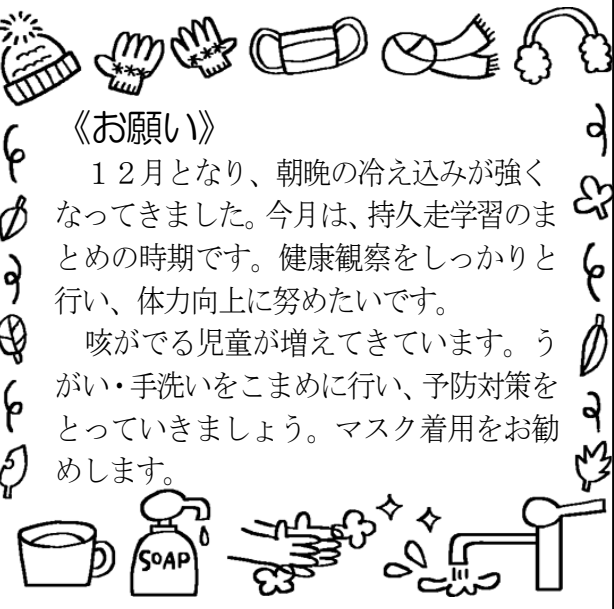 《お願い》
　１２月となり、朝晩の冷え込みが強く
なってきました。今月は、持久走学習のま
とめの時期です。健康観察をしっかりと
行い、体力向上に努めたいです。
　咳がでる児童が増えてきています。う
がい・手洗いをこまめに行い、予防対策を
とっていきましょう。マスク着用をお勧
めします。
SOAP